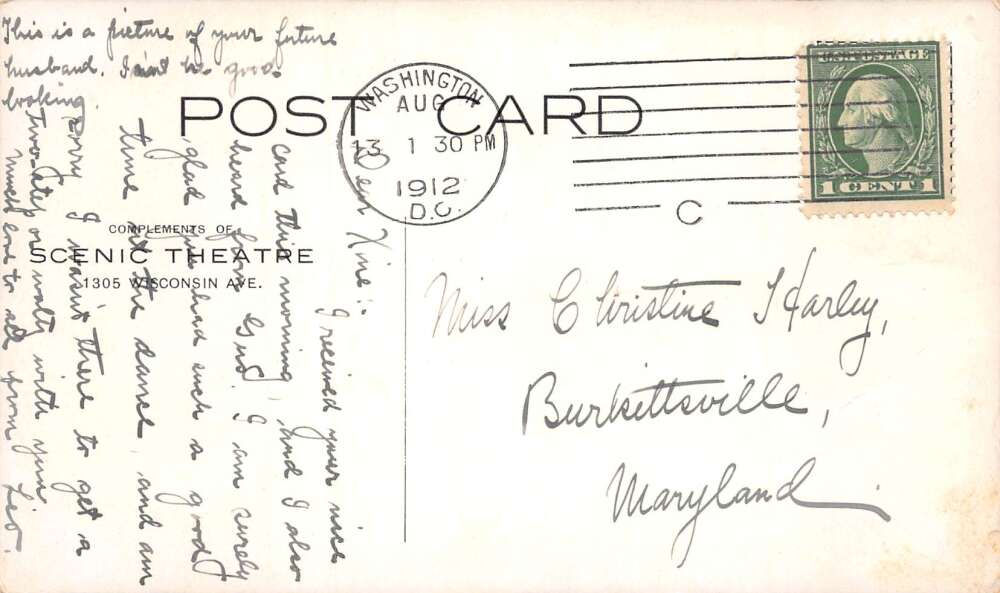 This is a picture of your future
husband. Isn't he good
looking.
POST CARD
WASHINGTON
AUG
13 1 30 PM
1912
D.C.
C
U.S. POSTAGE
1 CENT 1
COMPLEMENTS OF
SCENIC THEATRE
1305 WISCONSIN AVE.
Dear Xine:
I received your nice
card this morning, and I also
heard from Gus. I am surely
glad you had such a good
time at the dance, and am
sorry I wasn't there to get a
two-step or waltz with you
Much love to all from Leo.
Miss Christine Harley,
Burkittsville,
Maryland